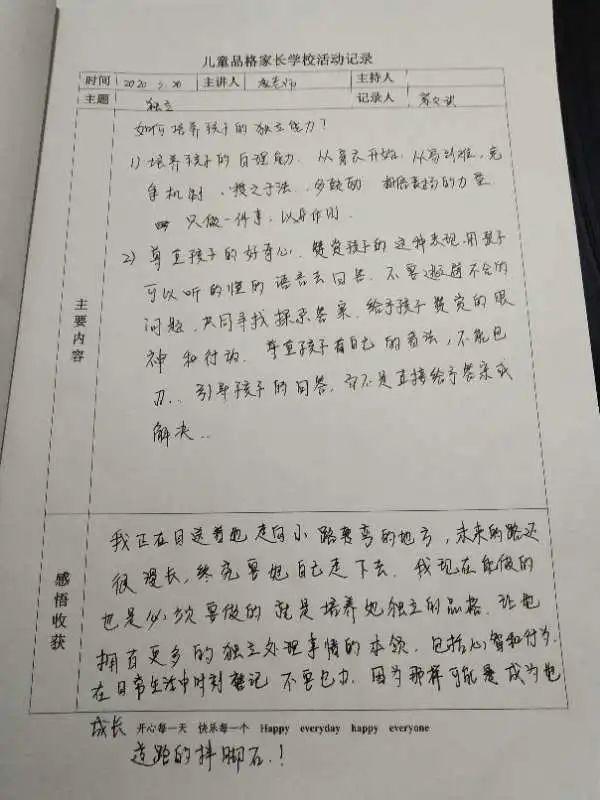 儿童品格家长学校活动记录
时间 2020 2.20 主讲人 老师 主持人
主题 独立 记录人
如何培养孩子的独立能力?
1) 培养孩子的自理能力. 从穿衣开始. 从易到难, 充
手机制、授之于法、多鼓励 相信表扬的力量.
只做一件事, 以身作则.
2) 尊重孩子的好奇心. 赞赏孩子的这种表现. 用孩子
可以听的懂的语言去回答. 不要逃避不会的
问题, 共同寻找探索答案. 给予孩子赞赏的眼
神和行动. 尊重孩子有自己的看法, 不能包
办.. 引导孩子的回答, 而不是直接给予答案或
解决..
主要内容
我正在目送着她走向小路转弯的地方, 未来的路还
很漫长, 终究要她自己走下去. 我现在能做的
也是必须要做的就是培养她独立的品格. 让她
拥有更多的独立处理事情的本领. 包括心智和行为.
在日常生活中时刻谨记不要包办. 因为那样可能是成为她
感悟收获
成长 开心每一天 快乐每一个 Happy everyday happy everyone
道路的绊脚石.!